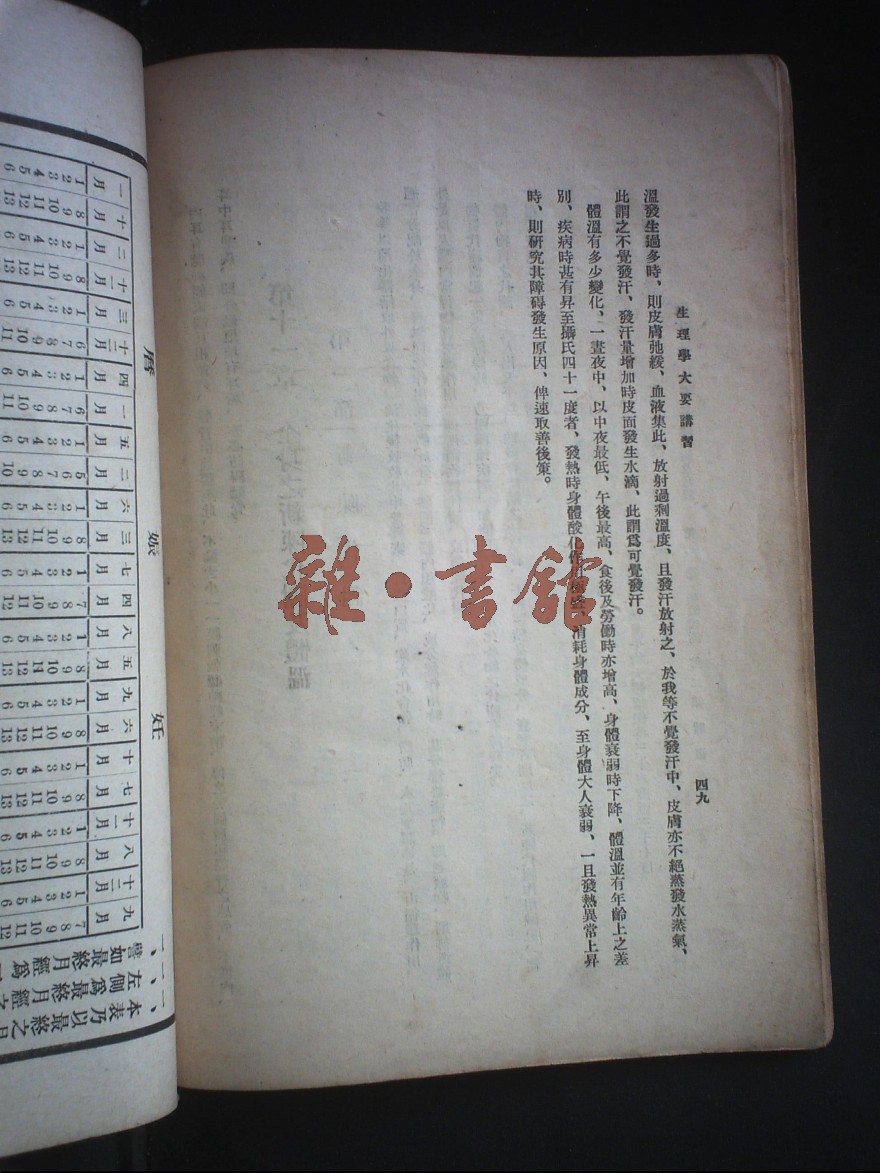 生理學大要講習
四九
溫發生過多時、則皮膚弛緩、血液集此、放射過剩溫度、且發汗放射之、於我等不覺發汗中、皮膚亦不絕蒸發水蒸氣、
此謂之不覺發汗、發汗量增加時皮面發生水滴、此謂爲可覺發汗。
體溫有多少變化、一晝夜中、以中夜最低、午後最高、食後及勞働時亦增高、身體衰弱時下降、體溫並有年齡上之差
別、疾病時甚有昇至攝氏四十一度者、發熱時身體酸化作用 消耗身體成分、至身體大人衰弱、一旦發熱異常上昇
時、則研究其障碍發生原因、俾速取善後策。
雜·書館
妊娠曆
一月 1 2 3 4 5 6
十月 8 9 10 11 12 13
二月 1 2 3 4 5 6
十一月 8 9 10 11 12 13
三月 1 2 3 4 5 6
十二月 6 7 8 9 10 11
四月 1 2 3 4 5 6
一月 6 7 8 9 10 11
五月 1 2 3 4 5 6
二月 5 6 7 8 9 10
六月 1 2 3 4 5 6
三月 8 9 10 11 12 13
七月 1 2 3 4 5 6
四月 7 8 9 10 11 12
八月 1 2 3 4 5 6
五月 8 9 10 11 12 13
九月 1 2 3 4 5 6
六月 8 9 10 11 12 13
十月 1 2 3 4 5 6
七月 8 9 10 11 12 13
十一月 1 2 3 4 5 6
八月 8 9 10 11 12 13
十二月 1 2 3 4 5 6
九月 7 8 9 10 11 12
一、本表乃以最終之月
一、左側爲最終月經之
一、譬如最終月經爲